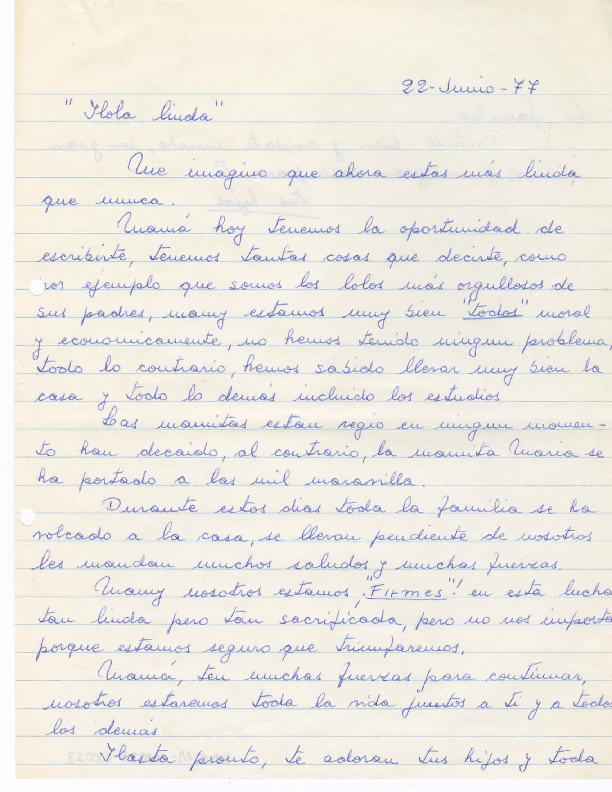 22-Junio-77
"Hola linda"
Me imagino que ahora estas más linda
que nunca.
Mamá hoy tenemos la oportunidad de
escribirte, tenemos tantas cosas que decirte, como
por ejemplo que somos los lolos más orgullosos de
sus padres, mamy estamos muy bien "todos" moral
y economicamente, no hemos tenido ningun problema,
todo lo contrario, hemos sabido llevar muy bien la
casa y todo lo demás incluido los estudios
Las mamitas estan regio en ningun momen-
to han decaido, al contrario, la mamita Maria se
ha portado a las mil maravilla.
Durante estos dias toda la familia se ha
volcado a la casa, se llevan pendiente de nosotros
les mandan muchos saludos y muchas fuerzas.
Mamy nosotros estamos ¡"Firmes"! en esta lucha
tan linda pero tan sacrificada, pero no nos importa
porque estamos seguro que triunfaremos.
Mamá, ten muchas fuerzas para continuar,
nosotros estaremos toda la vida juntos a ti y a todos
los demás
Hasta pronto, te adoran tus hijos y toda